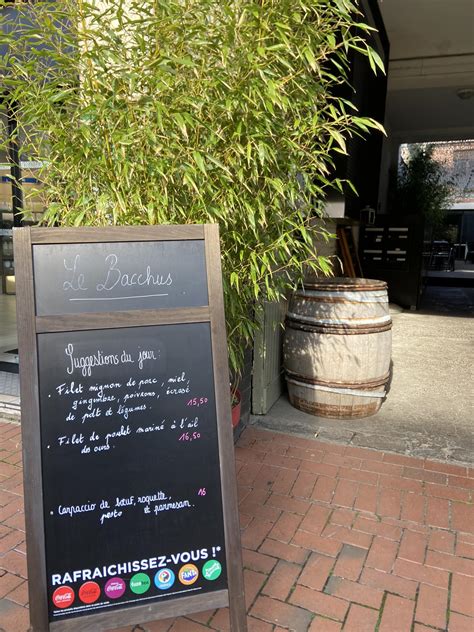 Le Bacchus
Suggestions du jour :
- Filet mignon de porc, miel,
gingembre, poivrons, écrasé
de pdt et légumes. 15,50
- Filet de poulet mariné à l'ail
des ours. 16,50
- Carpaccio de bœuf, roquette, 16
pesto et parmesan.
RAFRAICHISSEZ-VOUS !*